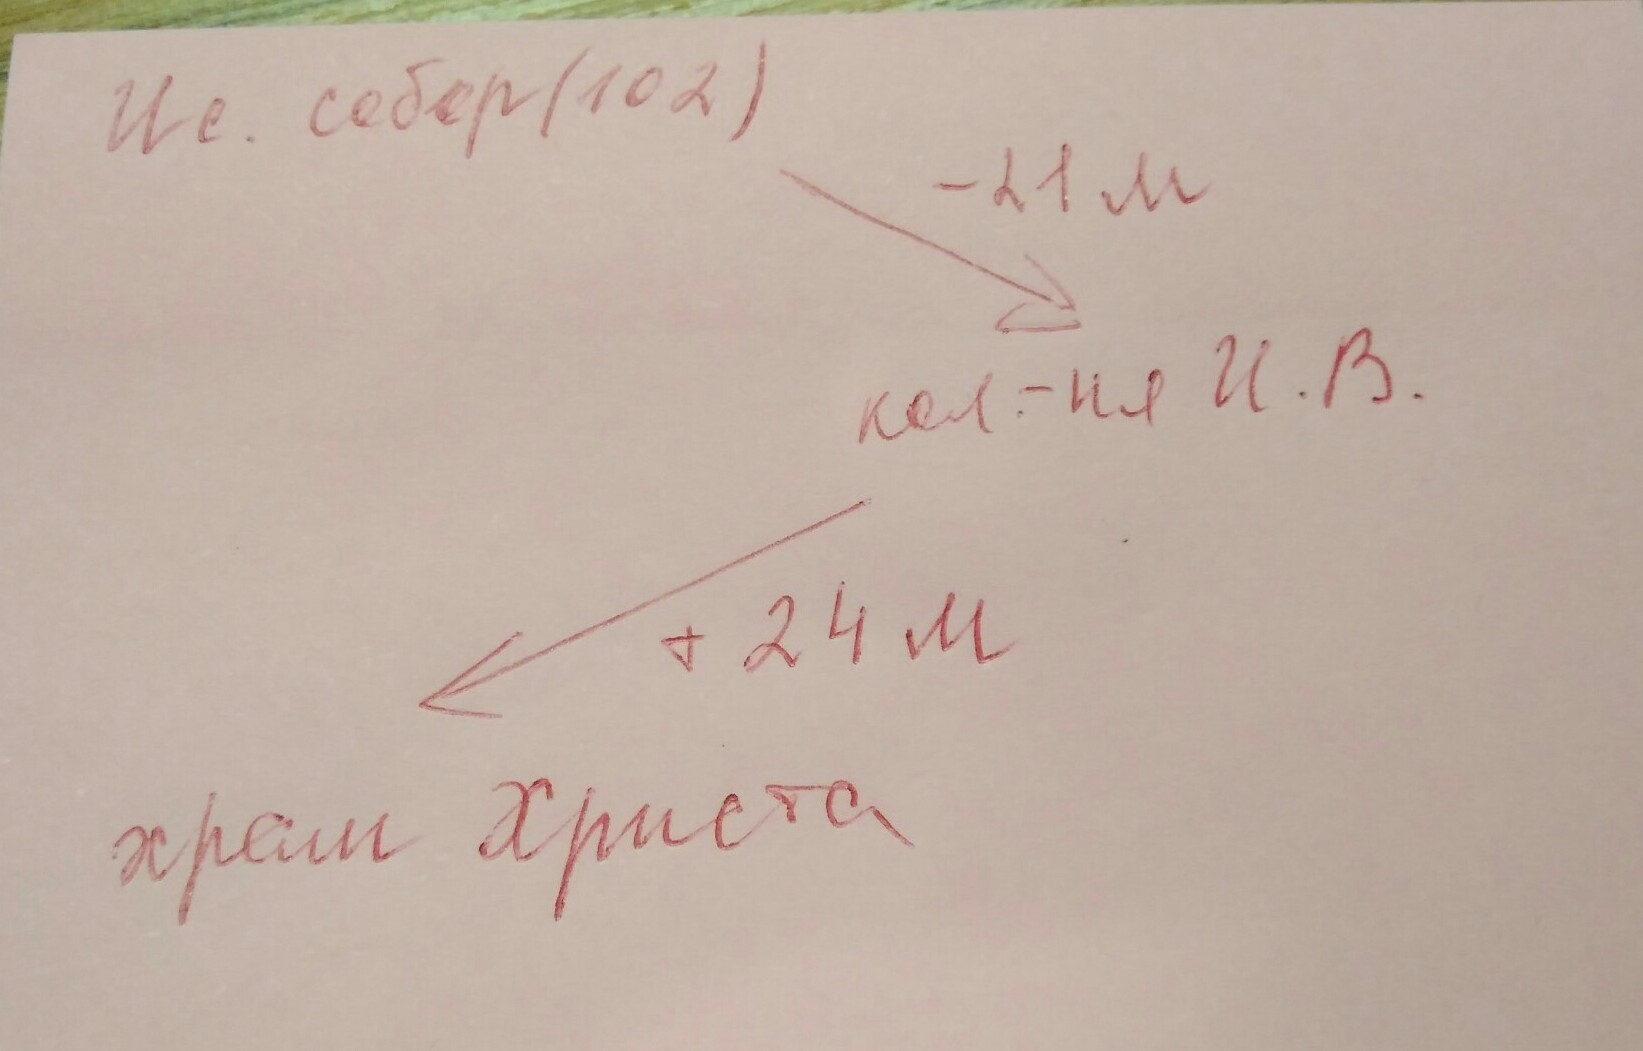 Ис. собор (102)
-21 м
кол.-ня И.В.
+ 24 м
храм Христа